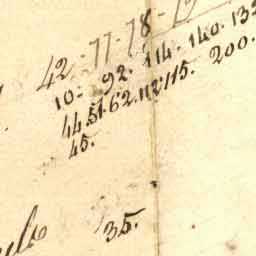 42·77·78·
10· 92· 114· 140· 132
44.51·62.112·115. 200.
45.
35.